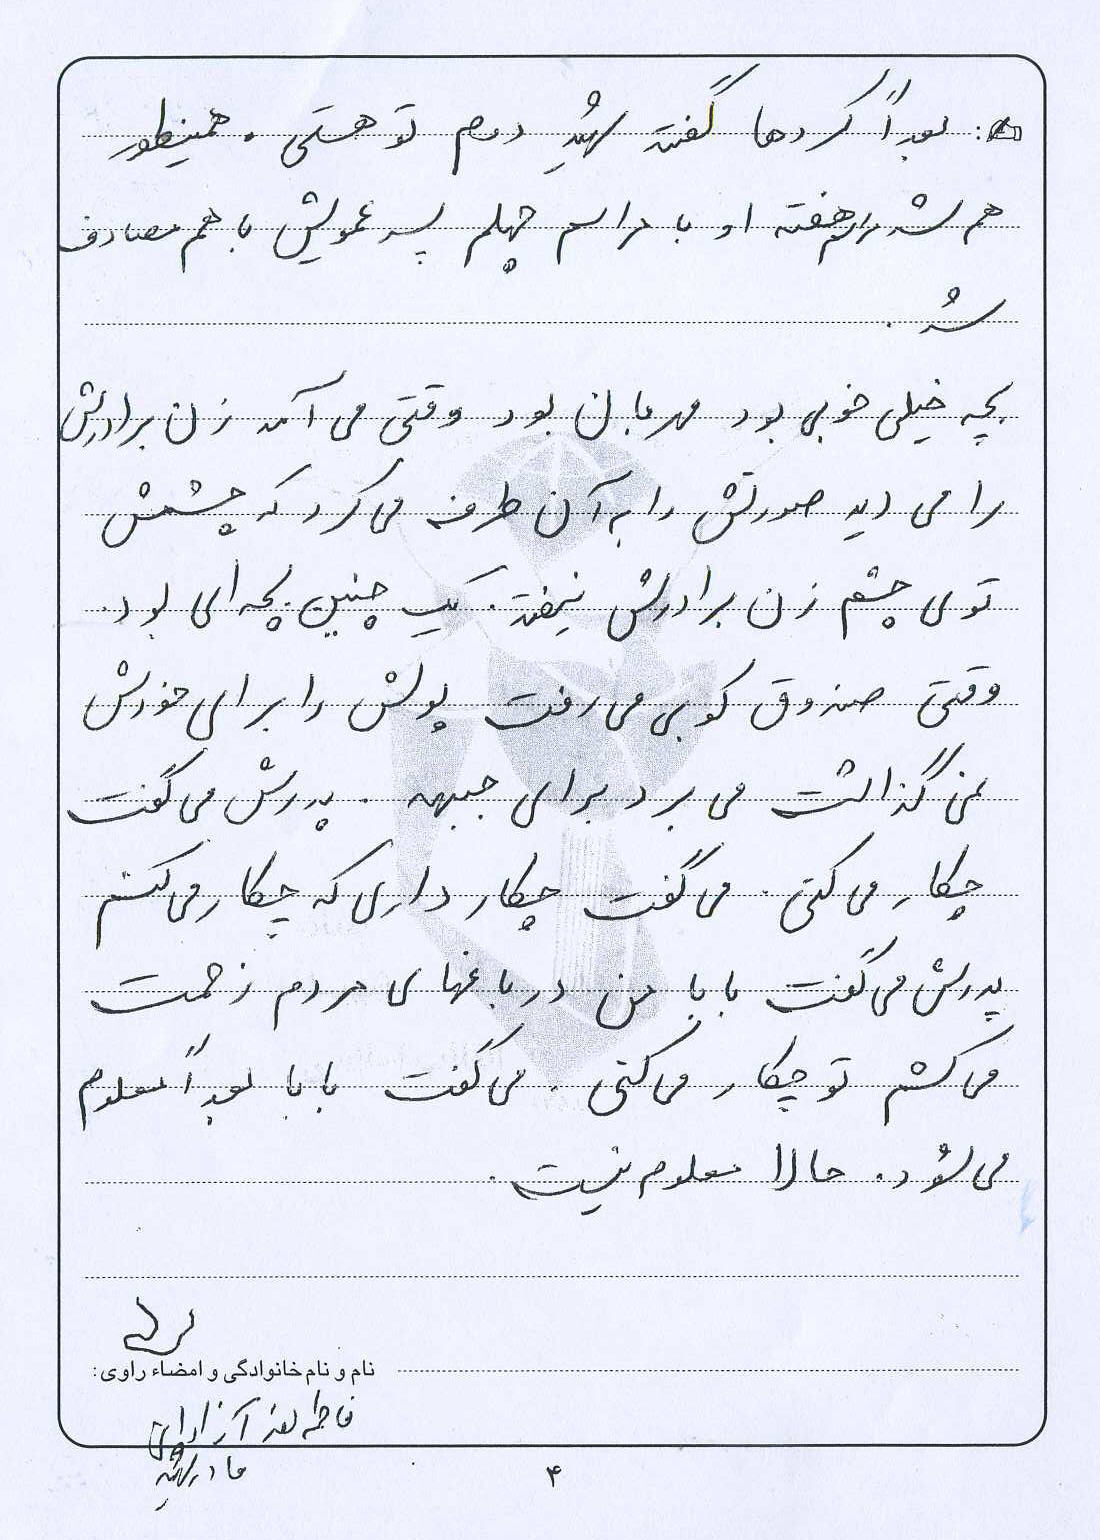 بعداً کردها گفتند شهید دوم تو هستی . همینطور
هم شد مراسم هفته او با مراسم چهلم پسر عمویش با هم مصادف
شد .
بچه خیلی خوبی بود مهربان بود وقتی می آمد زن برادرش
را می دید صورتش را به آن طرف می کرد که چشمش
توی چشم زن برادرش نیفتد . یک چنین بچه ای بود .
وقتی صندوق کوبی می رفت پولش را برای خودش
نمی گذاشت می برد برای جبهه . پدرش می گفت
چکار می کنی . می گفت چکار داری که چکار می کنم
پدرش می گفت بابا من در باغهای مردم زحمت
می کشم تو چکار می کنی . می گفت بابا بعداً معلوم
می شود . حالا معلوم نیست .
نام و نام خانوادگی و امضاء راوی:
فاطمه
مادر شهید
۴